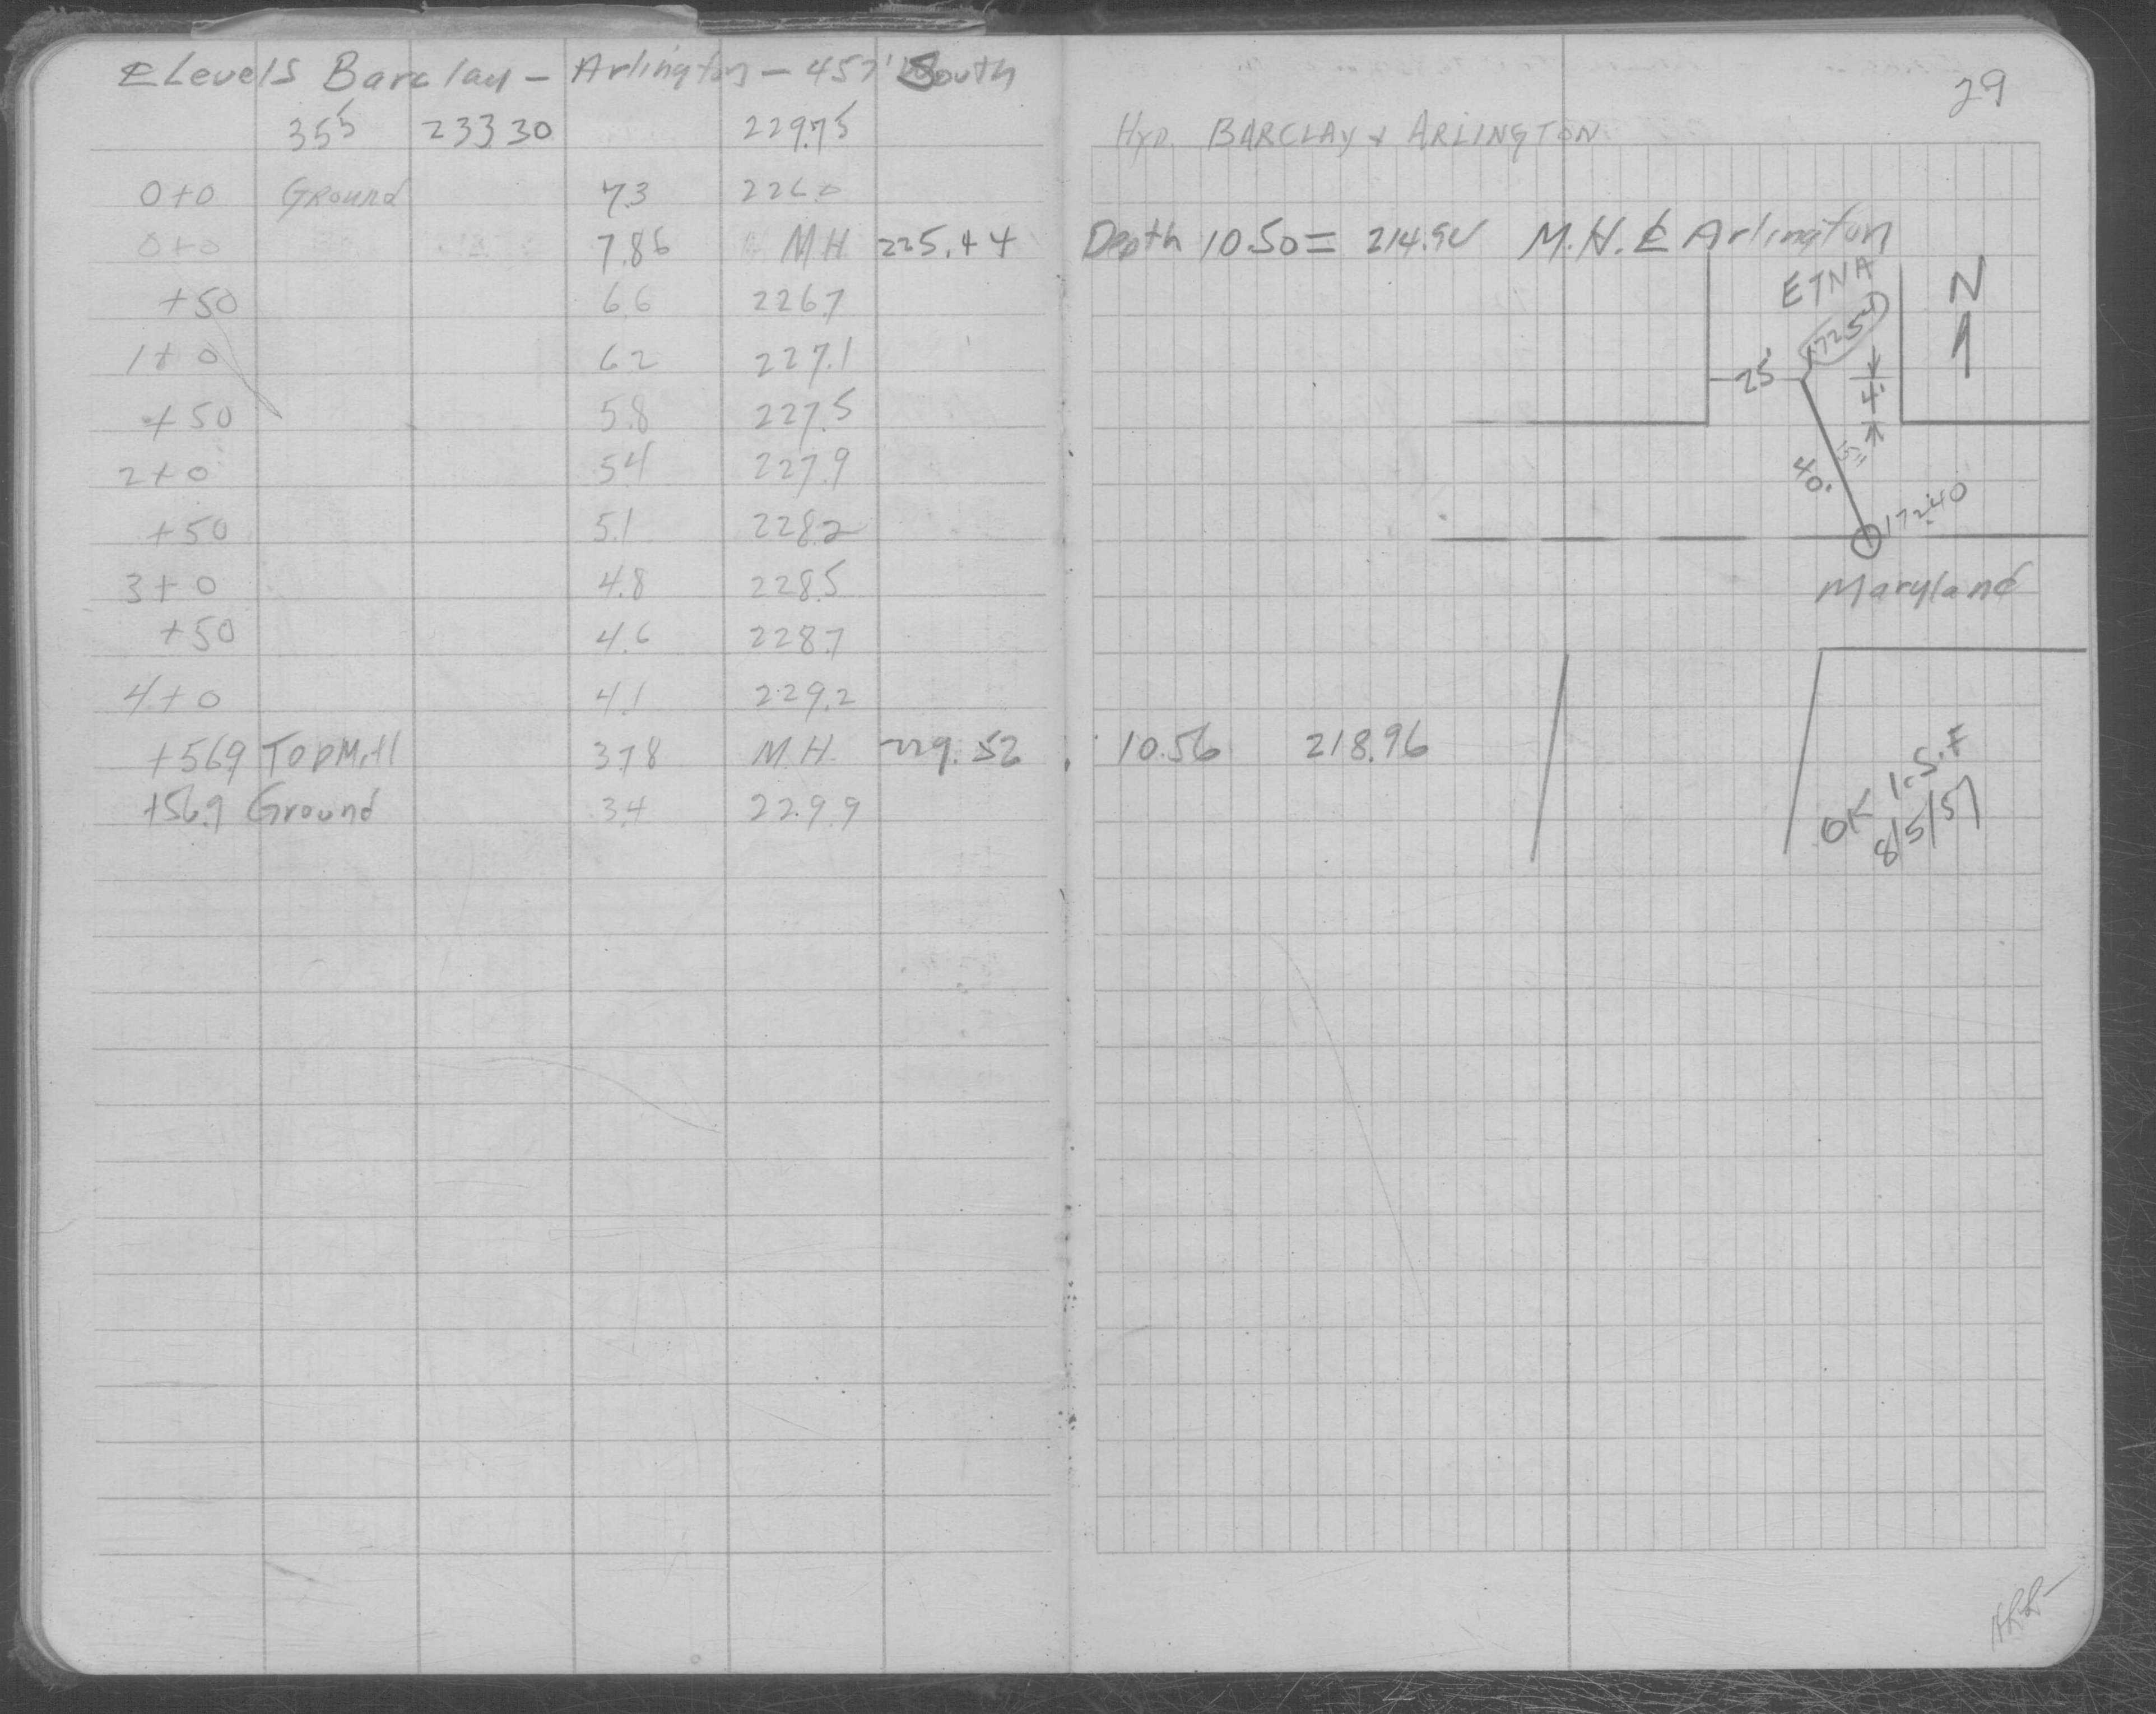 ⅊ Levels Barclay - Arlington - 457' South
355 23330 229.75
0+0 Ground 7.3 226.0
0+0 7.86 M.H. 225.44
+50 6.6 226.7
1+0 6.2 227.1
+50 5.8 227.5
2+0 5.4 227.9
+50 5.1 228.2
3+0 4.8 228.5
+50 4.6 228.7
4+0 4.1 229.2
+569 Top M.H 378 M.H. 229.52
+56.9 Ground 3.4 229.9
29
Hyd. BARCLAY & ARLINGTON
Depth 10.50 = 214.94 M.H. ⅊ Arlington
ETNA
N
25'
4'
40'
17240
Maryland
10.56 218.96
OK I.S.F
8/5/51